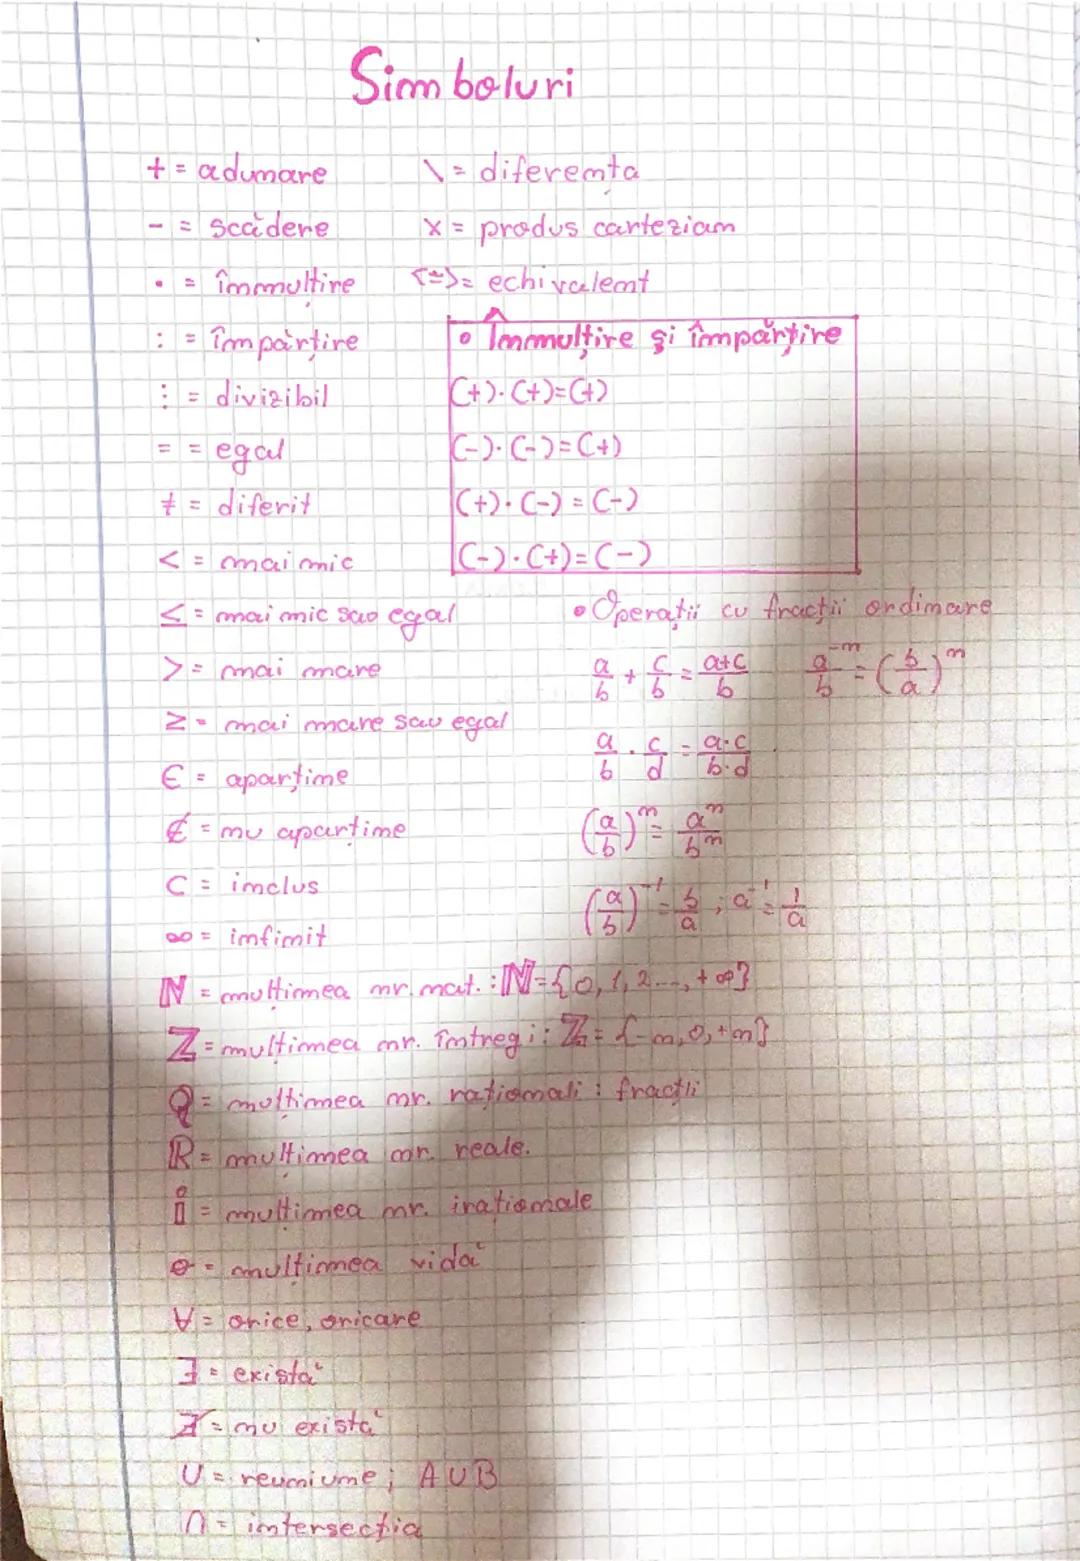 Simboluri
+ = adunare
- = scădere
• = înmulțire
: = împărțire
⋮ = divizibil
= = egal
≠ = diferit
< = mai mic
≤ = mai mic sau egal
> = mai mare
≥ = mai mare sau egal
∈ = aparține
∉ = nu aparține
⊂ = inclus
∞ = infinit
\ = diferența
x = produs cartezian
<=> = echivalent
• Înmulțire și împărțire
(+)·(+)=(+)
(-)·(-)=(+)
(+)·(-)=(-)
(-)·(+)=(-)
• Operații cu fracții ordinare
a/b + c/b = a+c/b   a/b^-n = (b/a)^n
a/b · c/d = a·c/b·d
(a/b)^n = a^n/b^n
(a/b)^-1 = b/a ; a^-1 = 1/a
ℕ = mulțimea nr. nat. : ℕ={0,1,2...,+∞}
ℤ = mulțimea nr. întregi: ℤ = {-n,0,+n}
ℚ = mulțimea nr. raționali : fracții
ℝ = mulțimea nr. reale.
i = mulțimea nr. iraționale
ɵ = mulțimea vidă
∀ = orice, oricare
∃ = există
∄ = nu există
∪ = reuniune; A∪B
∩ = intersecția